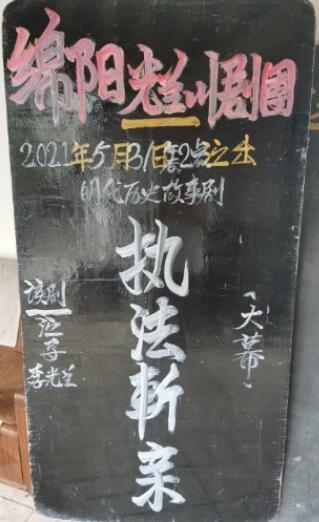 绵阳光兰川剧團
2021年5月31日晨2点之出
明代历史故事剧
执法斩亲
该剧
江子
李光兰
"大幕"